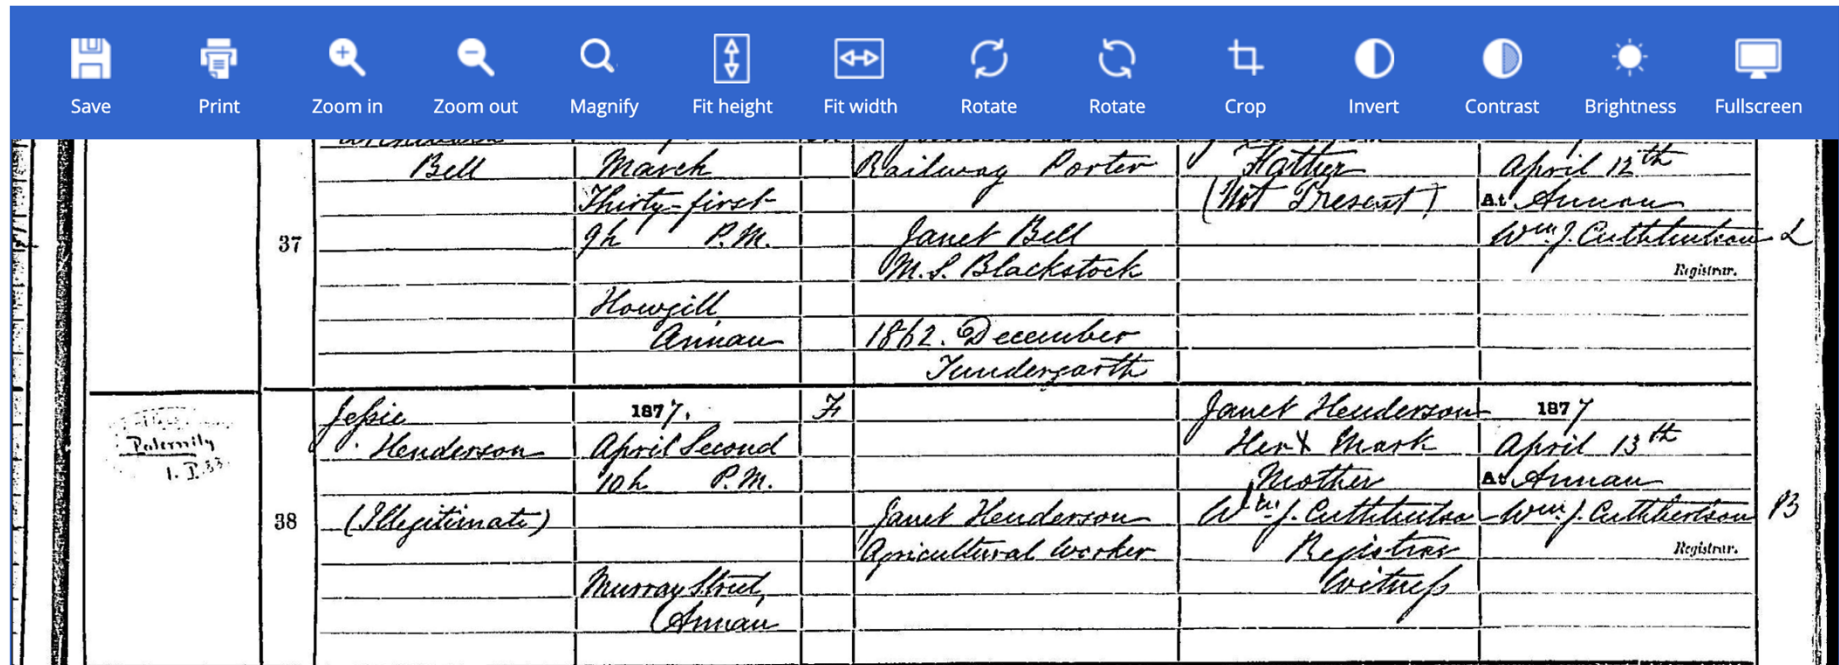 Save Print Zoom in Zoom out Magnify Fit height Fit width Rotate Rotate Crop Invert Contrast Brightness Fullscreen
37
Bell
March
Thirty-first
9h P.M.
Howgill
Annan
Railway Porter
Janet Bell
M.S. Blackstock
1862. December
Tundergarth
Father
(Not Present)
April 12th
At Annan
Wm. J. Cuthbertson
Registrar.
Paternity
38
Jessie
Henderson
(Illegitimate)
1877.
April Second
10h P.M.
Murray Street,
Annan
F
Janet Henderson
Agricultural Worker
Janet Henderson
Her X Mark
Mother
Wm. J. Cuthbertson
Registrar
Witness
1877
April 13th
At Annan
Wm. J. Cuthbertson
Registrar.